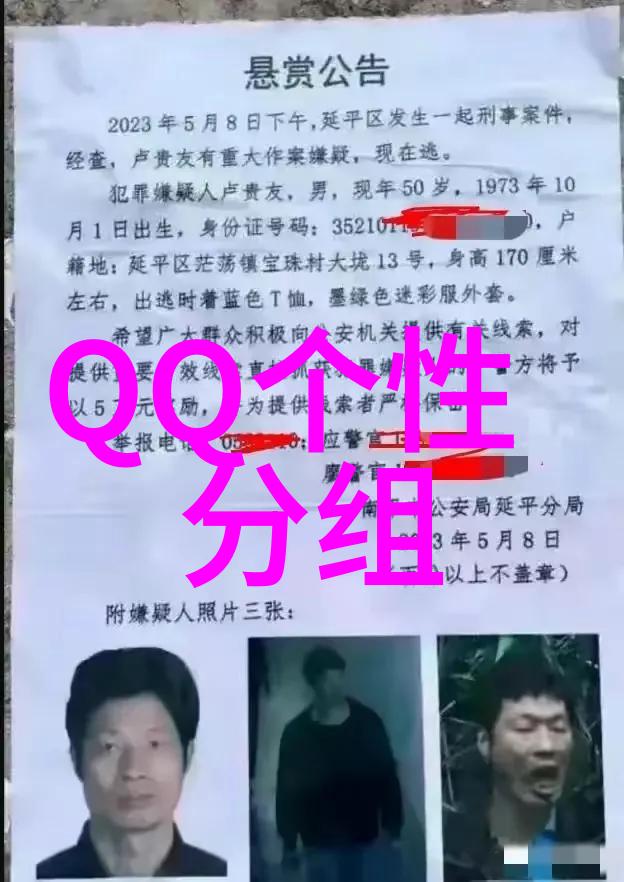 悬赏公告
2023年5月8日下午,延平区发生一起刑事案件,
经查,卢贵友有重大作案嫌疑,现在逃。
犯罪嫌疑人卢贵友,男,现年50岁,1973年10
月1日出生,身份证号码:3521011 0,户
籍地:延平区茫荡镇宝珠村大垅13号,身高170厘米
左右,出逃时着蓝色T恤,墨绿色迷彩服外套。
希望广大群众积极向公安机关提供有关线索,对
提供 要 效线 直 抓获犯罪嫌 的 警方将予
以5万元奖励, 为提供线索者严格保密
举报电话 应警官1
廖警官1
公安局延平分局
3年5月8日
以上不盖章)
附嫌疑人照片三张:
QQ个性
分组